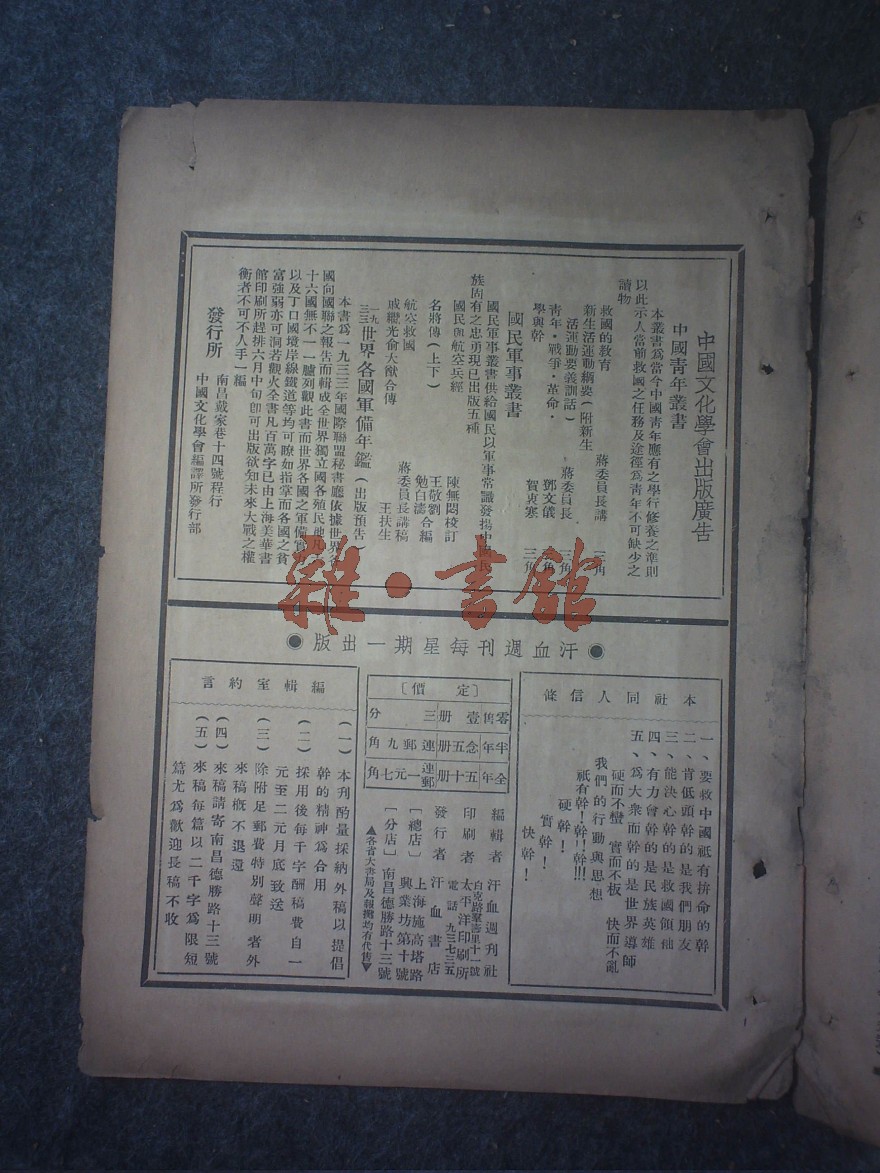 中國文化學會出版廣告
中國青年叢書
本叢書爲當今中國青年應有之學行修養之準則
以此示人當前救國之任務及途徑爲青年不可缺少之
讀物
救國的教育 蔣委員長講 二角
新生活運動綱要(附新生
活運動要義訓話) 蔣委員長 三角
青年·戰爭·革命· 鄧文儀 角
學與幹 賀衷寒 三角
國民軍事叢書
國民軍事叢書供給國民以軍事常識發揚中國民
族固有之忠勇現已出版五種
國民與航空兵經 陳無悶校訂
名將傳(上下) 王敬劉
勉白濤合編
航空救國 蔣委員長講稿
戚繼光俞大猷合傳 王扶生
一九三三世界各國軍備年鑑(出版預告)
本書爲一九三三年國際聯盟秘書廳依據世界各
國向國聯之報告而輯成全世界獨立國各殖民地凡
十六國無不一一臚列觀此書而世界各國之軍備實力
以及丁口國境岸線鐵道等均可瞭如指掌而各國之貧
富強弱亦可洞若觀火全書凡百萬字已由上海美華書
館印刷所趕排六月中旬卽可出版欲知未來大戰之權
衡者不可不人手一編
發行所 南昌戴家巷十四號程行
中國文化學會編譯所發行部
雜·書館
●汗血週刊每星期一出版●
本社同人信條
一、要救中國祇有拚命的幹
二、肯低頭幹的是我們朋友
三、能決心幹的是救國領袖
四、有力會幹的是民族英雄
五、爲大衆而幹的是世界導師
硬而不蠻 實而不板 快而不亂
我們的行動與思想
祇有幹!幹!!幹!!!
硬幹!
實幹!
快幹!
[定價]
零售壹册三分
半年念五册連郵九角
全年五十册連郵一元七角
編輯者 汗血週刊社
白克路羣壽里十一號
印刷者 太平洋印刷所
電話 九三七三五
發行者 汗血書店
[總店] 上海施高塔路
興業坊第十號
[分店] 南昌德勝路十三號
▲各省大書局及報攤均有代售▼
編輯室約言
(一)本刊酌量採納外稿以提倡
幹的精神爲合用
(二)採用後每千字酬稿費自一
元至二元月底致送
(三)除附足郵費特別聲明者外
來稿槪不退還
(四)來稿請寄南昌德勝路十三號
(五)來稿每篇以二千字爲限短
篇尤爲歡迎長稿不收